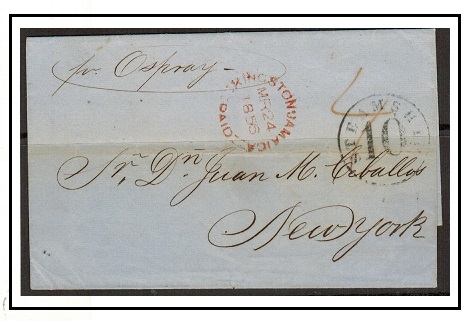 pr. Ospray
KINGSTON JAMAICA
MR 24
PAID
4
STEAMSHIP
10
Sr. Dn Juan M. Ceballos
New York